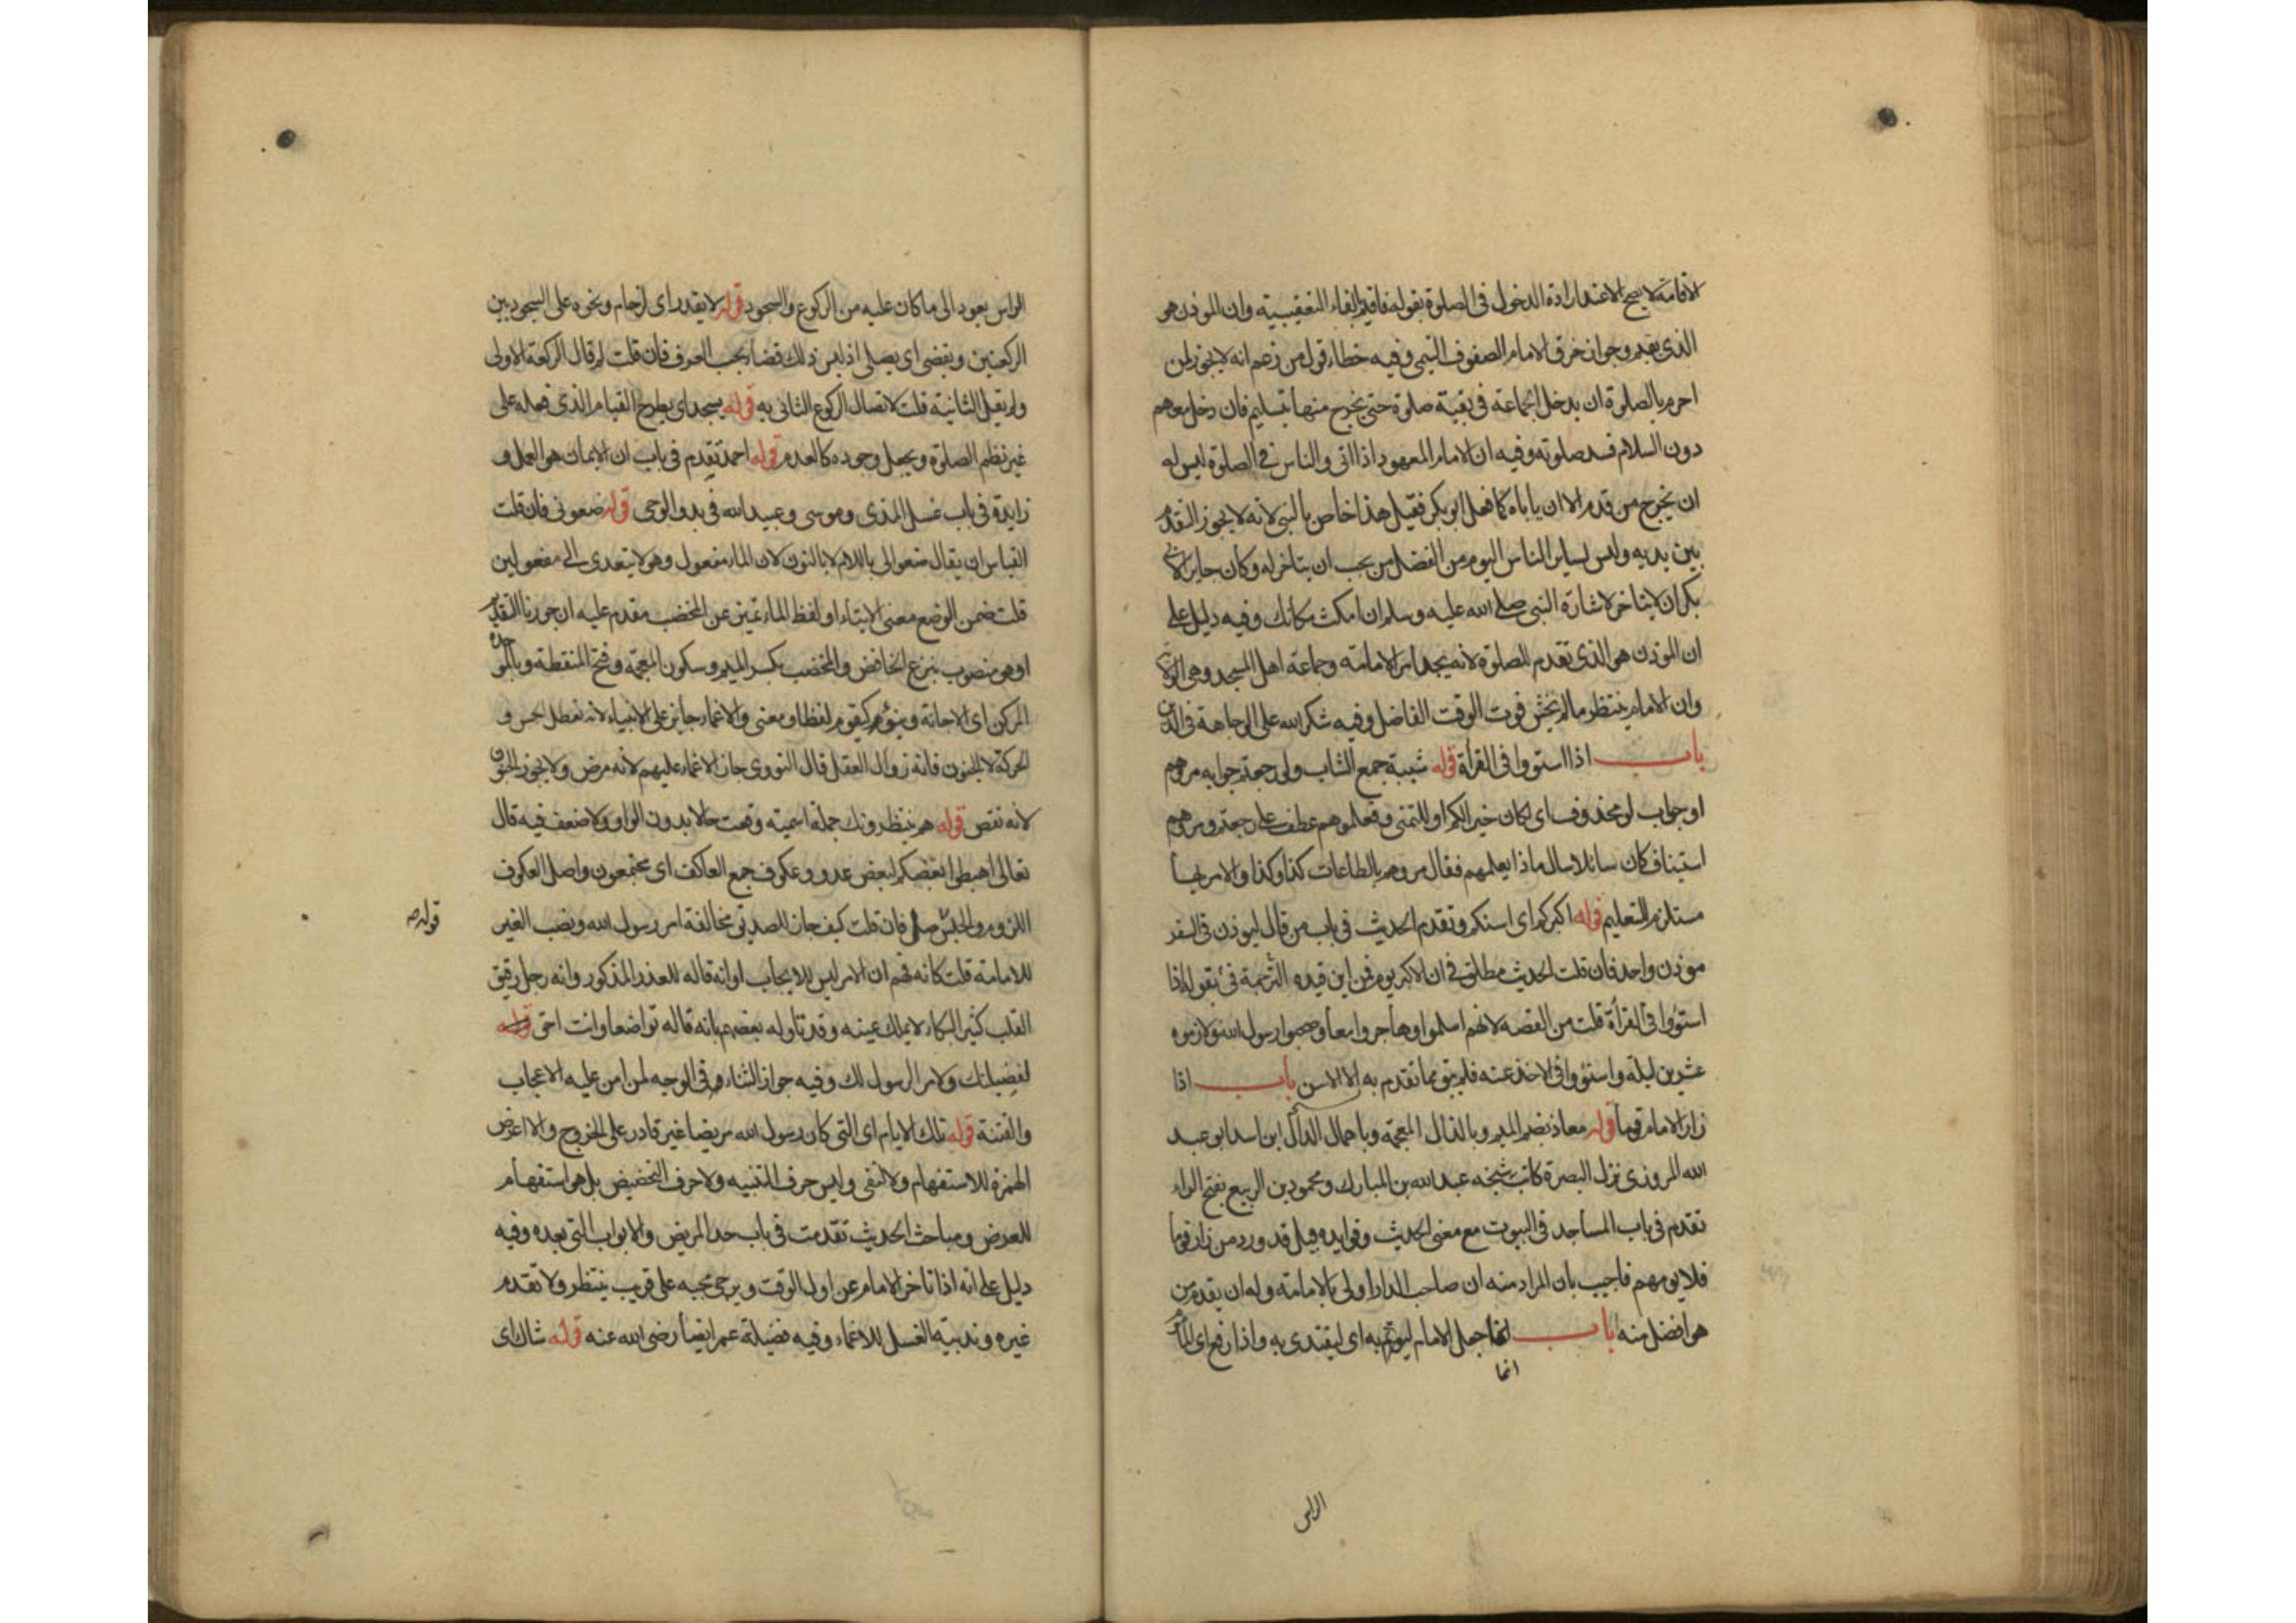 الاقامة لا يسع الا عند ارادة الدخول فى الصلوة بقوله فاقيم بالفاء التعقيبية وان المؤذن هو
الذى يقيم وجواز خرق الامام الصفوف التيمى وفيه خطاء قول من زعم انه لا يجوز لمن
احرم بالصلوة ان يدخل الجماعة فى بقية صلوة حتى يخرج منها بتسليم فان دخل معهم
دون السلام فسد صلوته وفيه ان الامام المعهود اذا اتى والناس فى الصلوة ليس له
ان يخرج من قدم الا ان ياباه كما فعل ابو بكر فقيل هذا خاص بالنبى لانه لا يجوز التقدم
بين يديه وليس لساير الناس اليوم من الفضل من يجب ان يتاخر له وكان جايز الابى
بكر ان لا يتاخر لاشارة النبى صلى الله عليه وسلم ان امكث مكانك وفيه دليل على
ان المؤذن هو الذى تقدم للصلوة لانه يخدم امر الامامة وجماعة اهل المسجد وهى الولاية
وان الامام ينتظر ما لم يخش فوت الوقت الفاضل وفيه شكر الله على الوجاهة فى الدين
باب اذا استووا فى القراة قوله شببة جمع الشاب ولو رجعتم جوابه مروهم
او جواب لو محذوف اى لكان خيرا لكم او للتمنى وفعلموهم عطف على رجعتم ومروهم
استيناف كان سائلا سال ماذا يعلمهم فقال مروهم بالطاعات كذا وكذا والامر بها
مستلزم للتعليم قوله اكبركم اى اسنكم وتقدم الحديث فى باب من قال ليوذن فى السفر
موذن واحد فان قلت الحديث مطلق فى ان الاكبر يوم فمن اين قيده الترجمة فى بقوله اذا
استووا فى القراة قلت من القصه لانهم اسلموا وهاجروا معا وصحبوا رسول الله ولازموه
عشرين ليلة واستووا فى الاخذ عنه فلم يبق مما تقدم به الا السن باب اذا
زار الامام قوما قوله معاذ بضم الميم وبالذال المعجمة وباهمال الدال ابن اسد ابو عبد
الله المروزى نزل البصرة كاتب شيخه عبد الله بن المبارك ومحمود بن الربيع بفتح الراء
تقدم فى باب المساجد فى البيوت مع معنى الحديث وفوايده قيل قد ورد من زار قوما
فلا يومهم فاجيب بان المراد منه ان صاحب الدار اولى بالامامة وله ان يقدم من
هو افضل منه باب انما جعل الامام ليوتم به اى ليقتدى به واذا رفع اى المأموم
انما
الراس
الراس يعود الى ما كان عليه من الركوع والسجود قوله لا يقدر اى لزحام ونحوه على السجود بين
الركعتين ويقضى اى يصلى اذ ليس ذلك قضاء بحسب العرف فان قلت لم قال الركعة الاولى
ولم يقل الثانية قلت لاتصال الركوع الثانى به قوله يسجد اى يطرح القيام الذى فعله على
غير نظم الصلوة ويجعل وجوده كالعدم قوله احمد تقدم فى باب ان الايمان هو العمل و
زايدة فى باب غسل المذى وموسى وعبيد الله فى بدو الوحى قوله ضعونى فان قلت
القياس ان يقال ضعوا لى باللام لا بالنون لان الماء مفعول وهو لا يتعدى الى مفعولين
قلت ضمن الوضع معنى الايتاء او لفظ الماء تمييز عن المخضب مقدم عليه ان جوزنا التقديم
او هو منصوب بنزع الخافض والمخضب بكسر الميم وسكون المعجمة وفتح المنقطة وبالموحدة
المركن اى الاجانة وينوء كيقوم لفظا ومعنى والاغماء جايز على الانبياء لانه تعطل الحس و
الحركة لا الجنون فانه زوال العقل قال النووى جاز الاغماء عليهم لانه مرض ولا يجوز الجنون
لانه نقص قوله هم ينتظرونك جملة اسمية وقعت حالا بدون الواو ولا ضعف فيه قال
تعالى اهبطوا بعضكم لبعض عدو وعكوف جمع العاكف اى مجتمعون واصل العكوف
اللزوم والحبس فان قلت كيف جاز للصديق مخالفة امر رسول الله ونصب الغير
للامامة قلت كانه فهم ان الامر ليس للايجاب او انه قاله للعذر المذكور وانه رجل رقيق
القلب كثير البكاء لا يملك عينه وقد تاوله بعضهم بانه قاله تواضعا وانت احق قوله
لفضيلتك ولامر الرسول لك وفيه جواز الثناء فى الوجه لمن امن عليه الاعجاب
والفتنة قوله تلك الايام اى التى كان رسول الله مريضا غير قادر على الخروج والا اعرض
الهمزة للاستفهام ولا للنفى وليس حرف التنبيه ولا حرف التحضيض بل هو استفهام
للعرض ومباحث الحديث تقدمت فى باب حد المريض والابواب التى بعده وفيه
دليل على انه اذا تاخر الامام عن اول الوقت ويرجى مجيه على قريب ينتظر ولا تقدم
غيره وندبية الغسل للاغماء وفيه فضيلة عمر ايضا رضى الله عنه قوله شاك اى